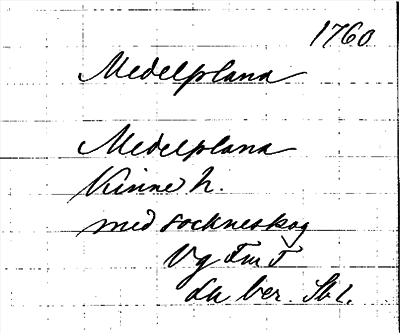 1760
Medelplana
Medelplana
Kinne h.
med sockneskog
Vg Fm F
La ber. Sbl.